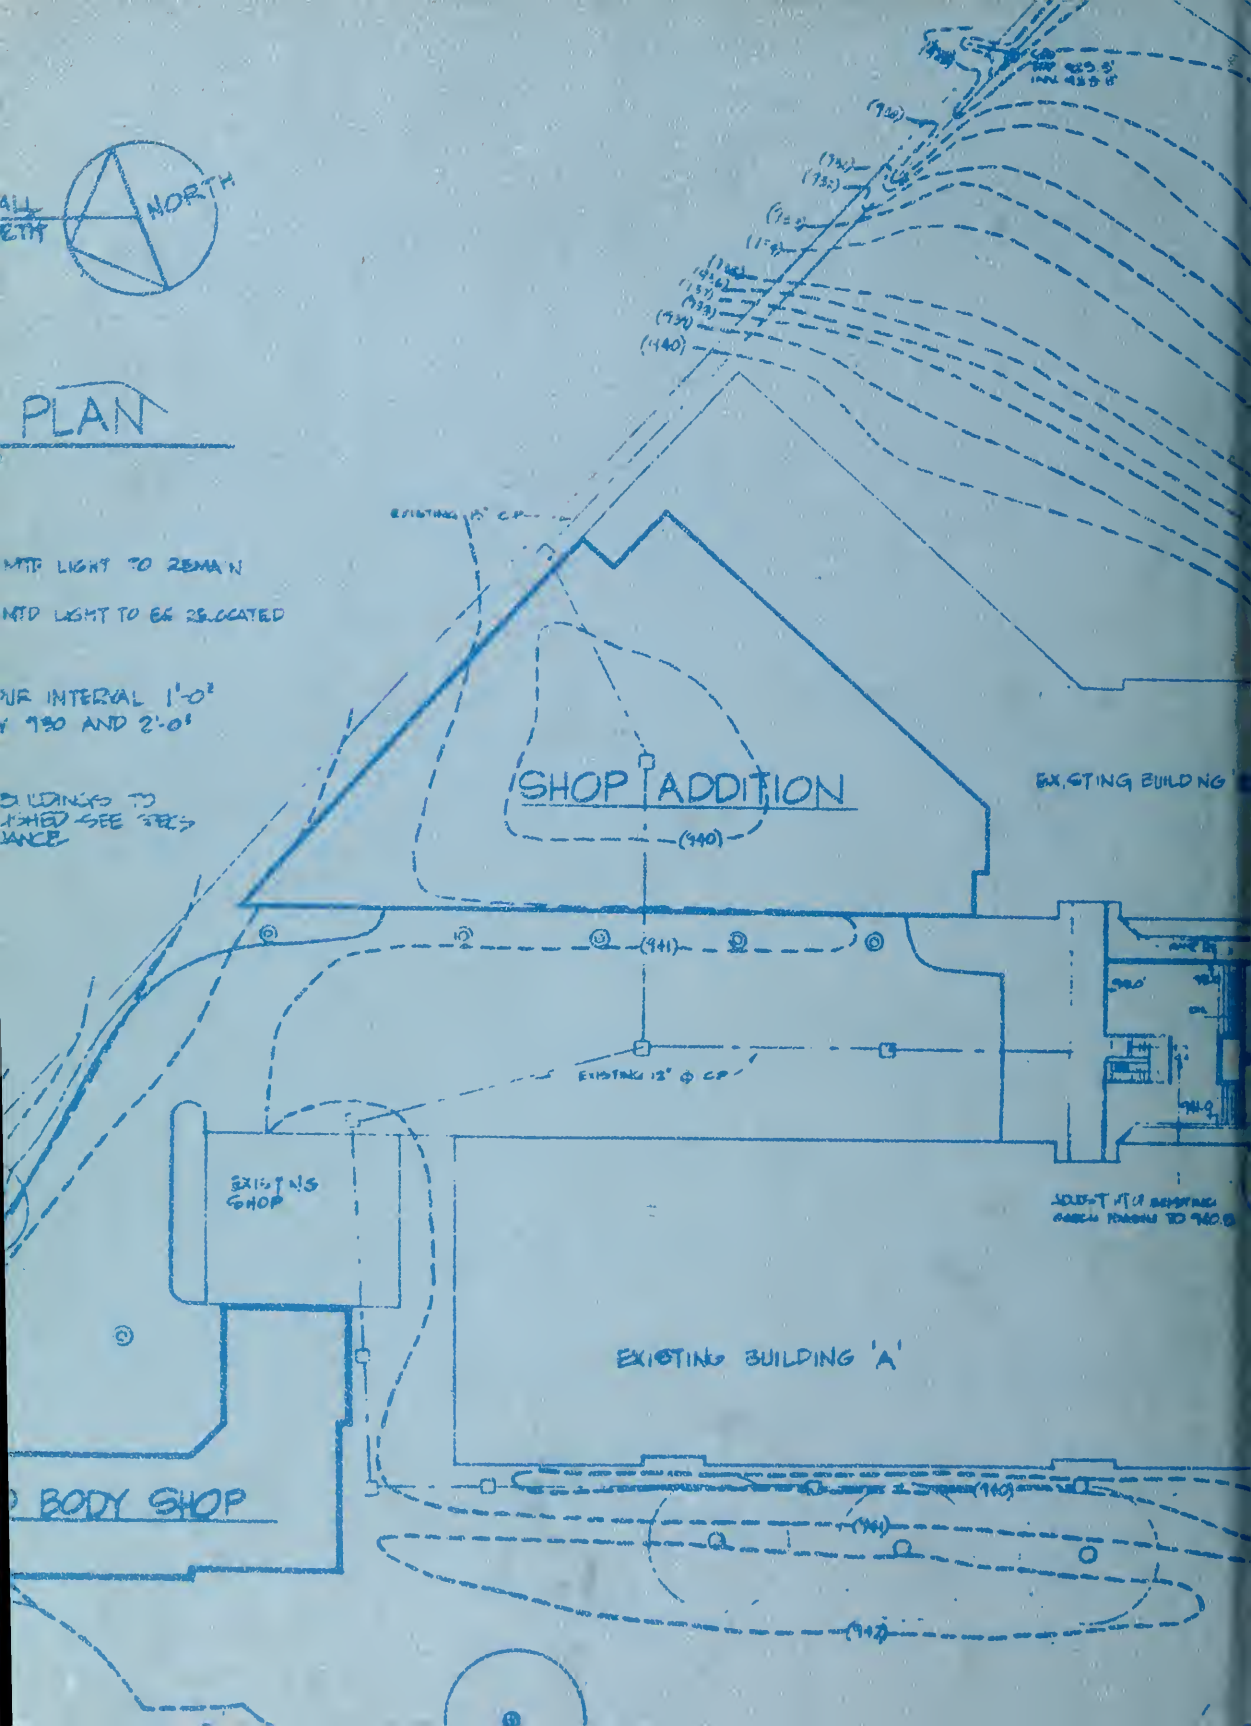 NORTH
PLAN
LIGHT TO REMAIN
MTD LIGHT TO BE RELOCATED
INTERVAL 1'-0"
930 AND 2'-0"
BUILDINGS TO
SEE SPECS
(930)
(932)
(933)
(934)
(936)
(937)
(938)
(939)
(940)
EXISTING 15" C.P.
SHOP ADDITION
(940)
EXISTING BUILDING
(941)
EXISTING 12" Φ C.P.
EXISTING
SHOP
ADJUST EXISTING
TO 940.5
EXISTING BUILDING 'A'
BODY SHOP
(940)
(941)
(942)